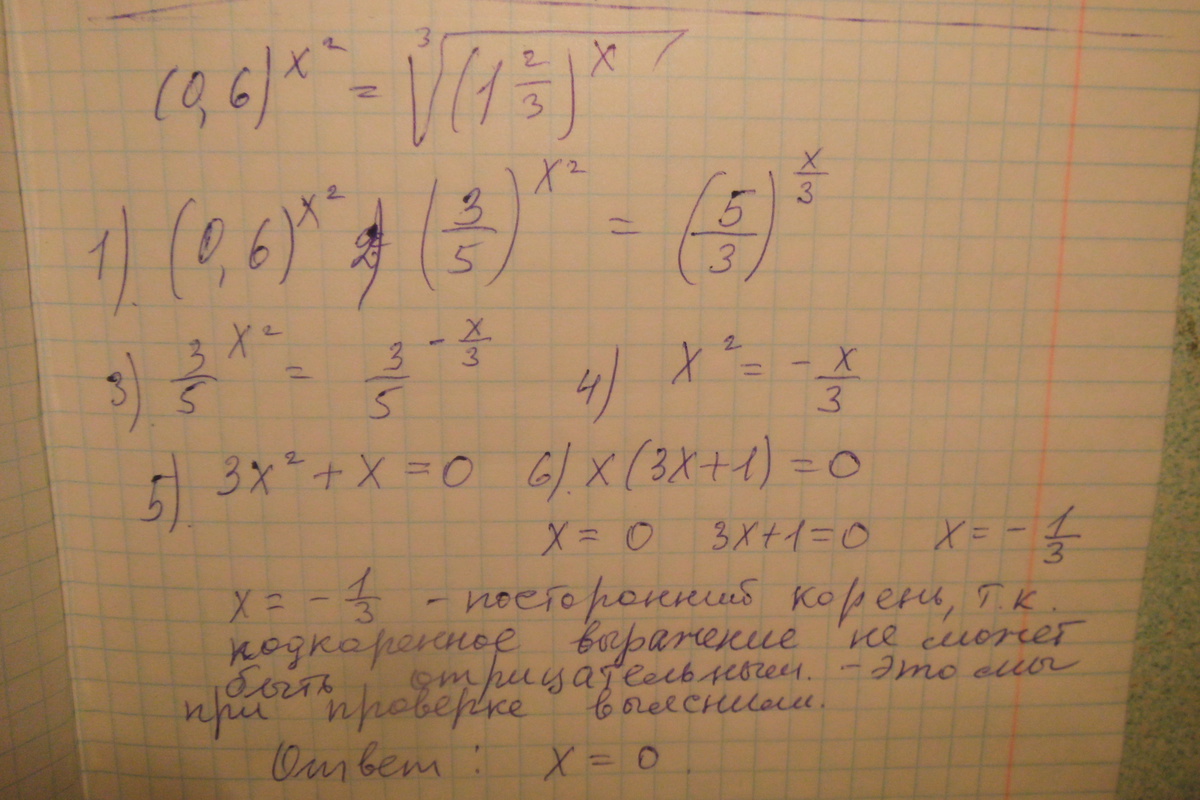 (0,6)^{x^2} = \sqrt[3]{(1\frac{2}{3})^x}
1). (0,6)^{x^2} 2) (\frac{3}{5})^{x^2} = (\frac{5}{3})^{\frac{x}{3}}
3) \frac{3}{5}^{x^2} = \frac{3}{5}^{-\frac{x}{3}} 4) x^2 = -\frac{x}{3}
5). 3x^2 + x = 0 6). x(3x+1) = 0
x = 0 3x+1=0 x = -\frac{1}{3}
x = -\frac{1}{3} - посторонний корень, т.к.
подкоренное выражение не может
быть отрицательным. - это мы
при проверке выясним.
Ответ : x = 0.